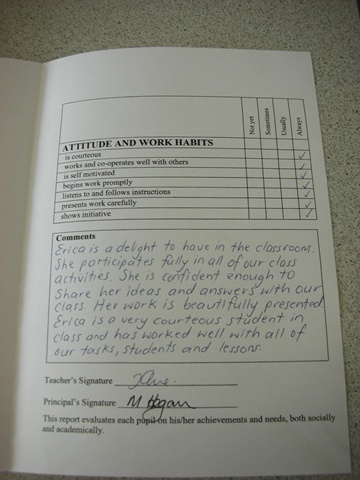 Not yet
Sometimes
Usually
Always
ATTITUDE AND WORK HABITS
is courteous
works and co-operates well with others
is self motivated
begins work promptly
listens to and follows instructions
presents work carefully
shows initiative
Comments
Erica is a delight to have in the classroom.
She participates fully in all of our class
activities. She is confident enough to
Share her ideas and answers with our
class. Her work is beautifully presented
Erica is a very courteous student in
class and has worked well with all of
our tasks, students and lessons.
Teacher's Signature
Principal's Signature M Hogan
This report evaluates each pupil on his/her achievements and needs, both socially
and academically.